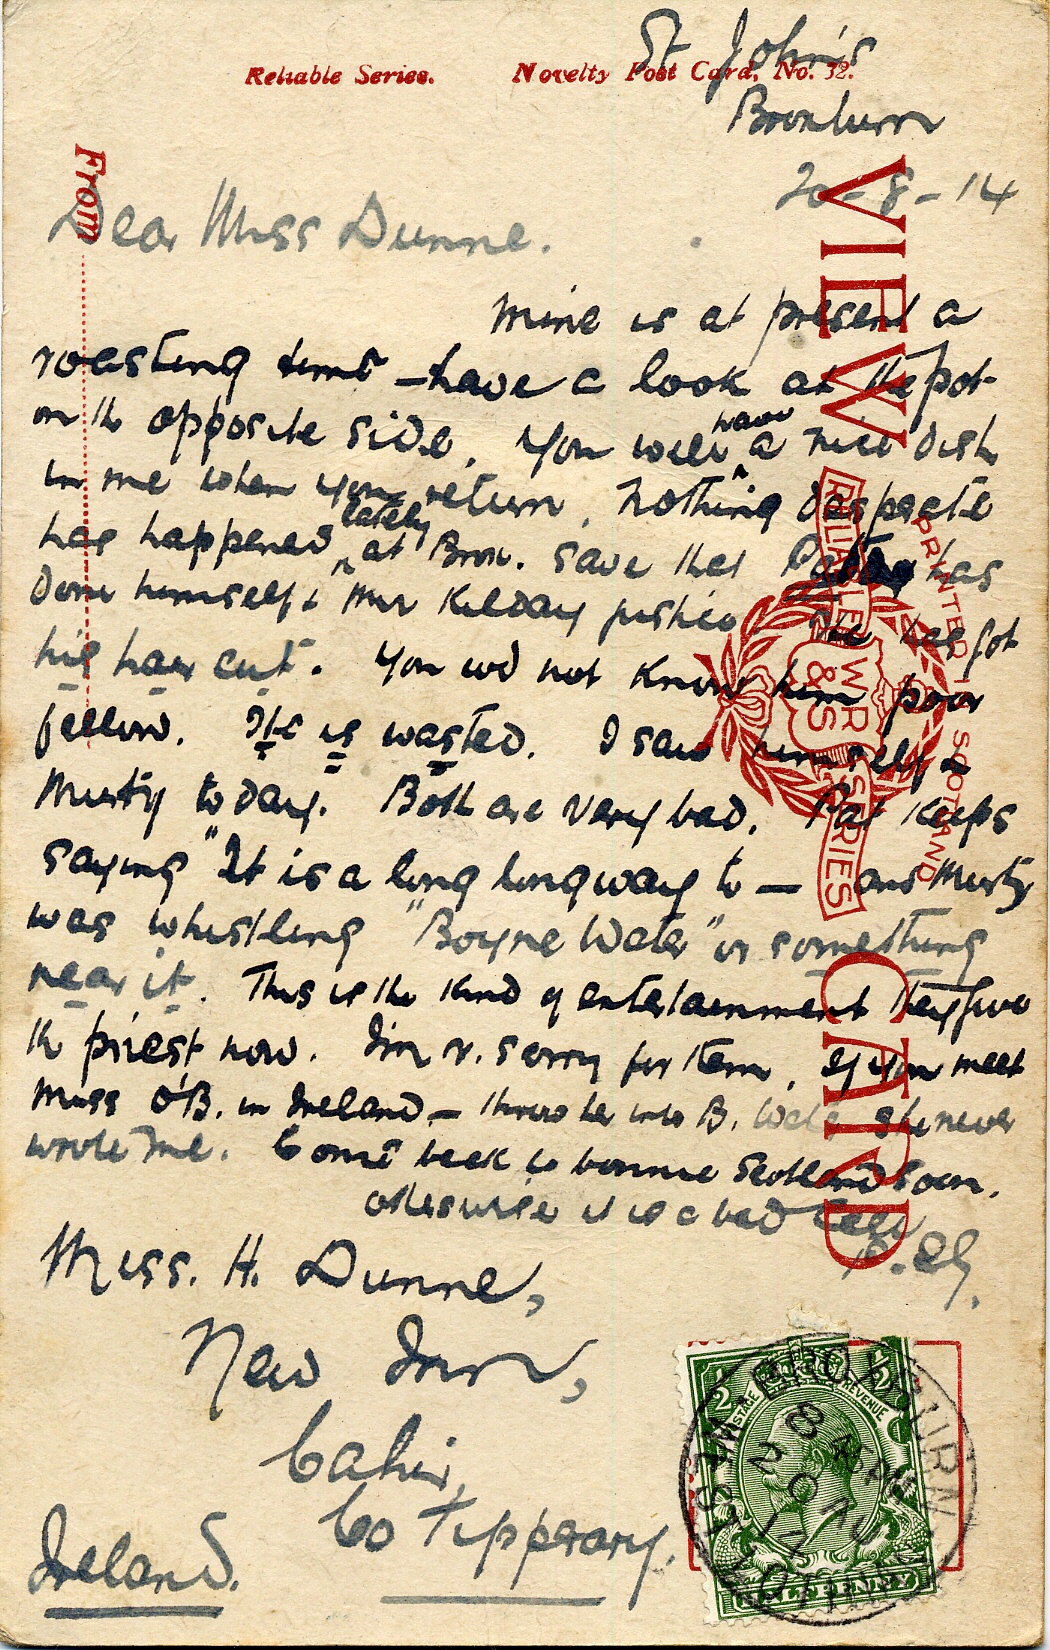 Reliable Series. Novelty Post Card, No. 32.
St John's
Broxburn
20-8-14
From
Dear Miss Dunne.
Mine is at present a
roasting time – have a look at the pot
on the opposite side. You will have a nice dish
in me when you return. Nothing desperate
has happened lately at Brox. save that has
done himself & Kilday He has got
his hair cut. You wd not know him poor
fellow. He is wasted. I saw himself &
Murty to day. Both are very bad. Pat keeps
saying "It is a long long way to — and Murty
was whistling "Boyne Water" or something
near it. This is the kind of entertainment they give
the priest now. I'm v. sorry for them. If you meet
Miss O'B. in Ireland – throw her into B. Water she never
wrote me. Come back to bonnie Scotland soon.
otherwise it is a bad
Miss. H. Dunne,
New Inn,
Cahir,
Co Tipperary.
Ireland.
VIEW CARD
RELIABLE WR & S SERIES
PRINTED SCOTLAND
POSTAGE REVENUE
½ ½
HALFPENNY
BROXBURN
WEST LOTHIAN